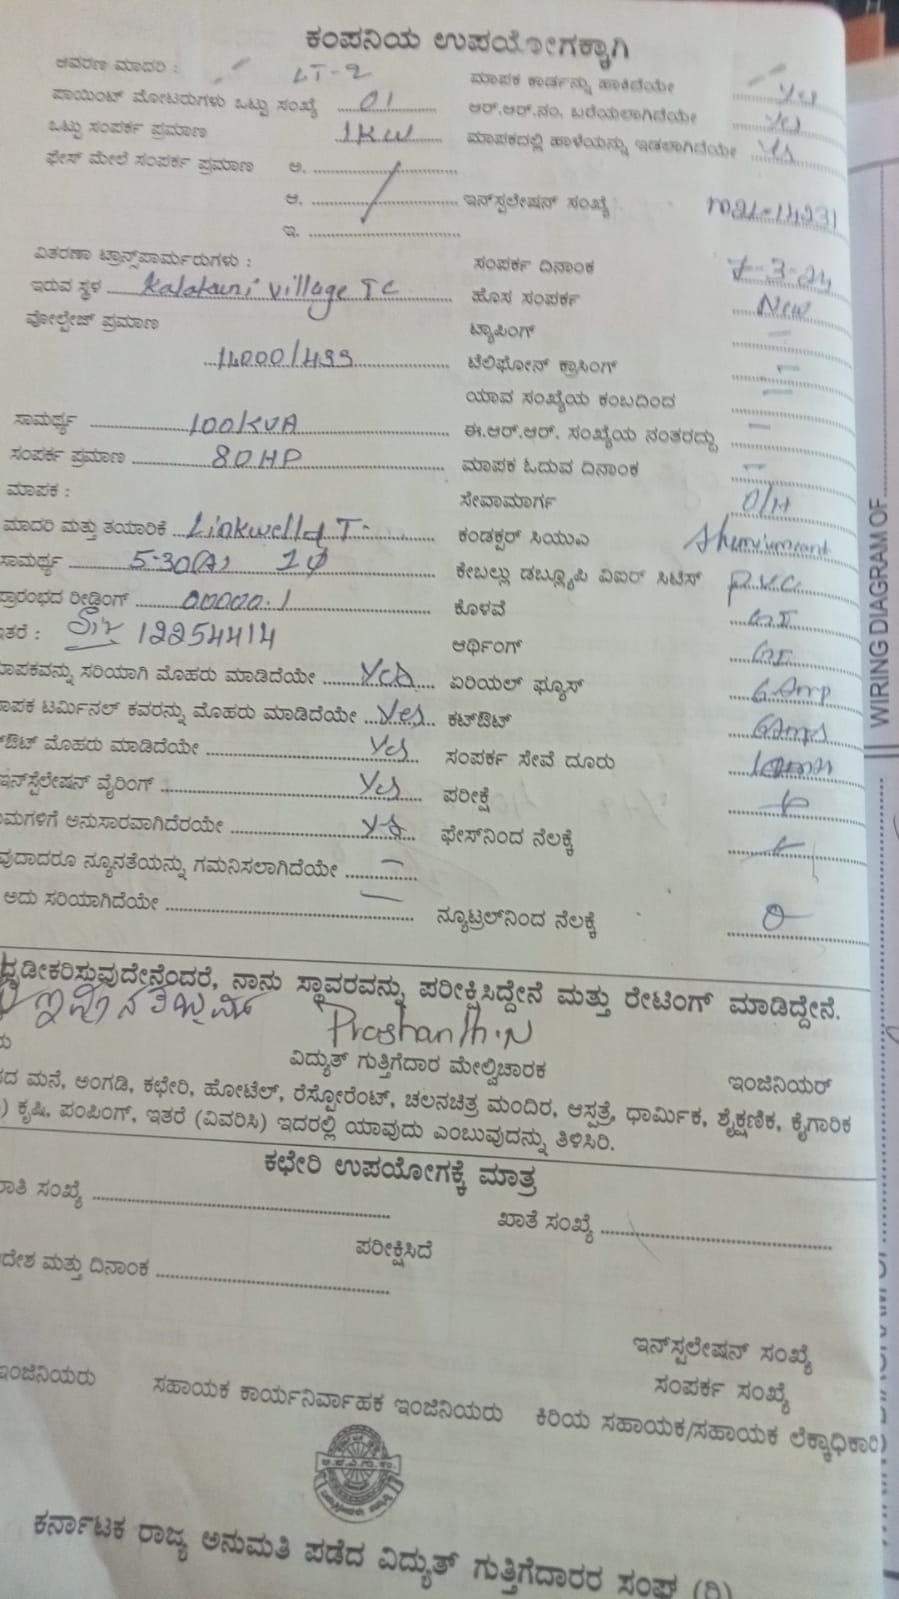 ಕಂಪನಿಯ ಉಪಯೋಗಕ್ಕಾಗಿ
ಆವರಣ ಮಾದರಿ : LT-2
ಮಾಪಕ ಕಾರ್ಡನ್ನು ಹಾಕಿದೆಯೇ Yes
ಪಾಯಿಂಟ್ ಮೋಟರುಗಳು ಒಟ್ಟು ಸಂಖ್ಯೆ 01
ಆರ್.ಆರ್.ನಂ. ಬರೆಯಲಾಗಿದೆಯೇ Yes
ಒಟ್ಟು ಸಂಪರ್ಕ ಪ್ರಮಾಣ 1KW
ಮಾಪಕದಲ್ಲಿ ಹಾಳೆಯನ್ನು ಇಡಲಾಗಿದೆಯೇ Yes
ಫೇಸ್ ಮೇಲೆ ಸಂಪರ್ಕ ಪ್ರಮಾಣ ಅ.
ಆ.
ಇನ್‌ಸ್ಪಲೇಷನ್ ಸಂಖ್ಯೆ
ಇ.
ವಿತರಣಾ ಟ್ರಾನ್ಸ್‌ಪಾರ್ಮರುಗಳು :
ಸಂಪರ್ಕ ದಿನಾಂಕ 7-3-24
ಇರುವ ಸ್ಥಳ village TC
ಹೊಸ ಸಂಪರ್ಕ New
ವೋಲ್ಟೇಜ್ ಪ್ರಮಾಣ
ಟ್ಯಾಪಿಂಗ್ -
ಟೆಲಿಫೋನ್ ಕ್ರಾಸಿಂಗ್ -
ಯಾವ ಸಂಖ್ಯೆಯ ಕಂಬದಿಂದ -
ಸಾಮರ್ಥ್ಯ 100KVA
ಈ.ಆರ್.ಆರ್. ಸಂಖ್ಯೆಯ ನಂತರದ್ದು -
ಸಂಪರ್ಕ ಪ್ರಮಾಣ 80HP
ಮಾಪಕ ಓದುವ ದಿನಾಂಕ -
ಮಾಪಕ :
ಸೇವಾಮಾರ್ಗ O/H
ಮಾದರಿ ಮತ್ತು ತಯಾರಿಕೆ
ಕಂಡಕ್ಟರ್ ಸಿಯುಎ
ಸಾಮರ್ಥ್ಯ 5-30(A) 1φ
ಕೇಬಲ್ಲು ಡಬ್ಲ್ಯೂಪಿ ವಿಐರ್ ಸಿಟಿಸ್ P.V.C.
ಪ್ರಾರಂಭದ ರೀಡ್ಡಿಂಗ್ 00000.1
ಕೊಳವೆ G.I
ಇತರೆ : 12254414
ಆರ್ಥಿಂಗ್ G.I
ಮಾಪಕವನ್ನು ಸರಿಯಾಗಿ ಮೊಹರು ಮಾಡಿದೆಯೇ Yes
ಏರಿಯಲ್ ಫ್ಯೂಸ್ 6 Amp
ಮಾಪಕ ಟರ್ಮಿನಲ್ ಕವರನ್ನು ಮೊಹರು ಮಾಡಿದೆಯೇ Yes
ಕಟ್‌ಔಟ್ 6 Amps
ಮೊಹರು ಮಾಡಿದೆಯೇ Yes
ಸಂಪರ್ಕ ಸೇವೆ ದೂರು
ಇನ್‌ಸ್ಪೆಲೇಷನ್ ವೈರಿಂಗ್ Yes
ಪರೀಕ್ಷೆ
ಅನುಸಾರವಾಗಿದೆರಯೇ Yes
ಫೇಸ್‌ನಿಂದ ನೆಲಕ್ಕೆ
ನ್ಯೂನತೆಯನ್ನು ಗಮನಿಸಲಾಗಿದೆಯೇ -
ಅದು ಸರಿಯಾಗಿದೆಯೇ -
ನ್ಯೂಟ್ರಲ್‌ನಿಂದ ನೆಲಕ್ಕೆ
ದೃಢೀಕರಿಸ್ತುವುದೇನೆಂದರೆ, ನಾನು ಸ್ಥಾವರವನ್ನು ಪರೀಕ್ಷಿಸಿದ್ದೇನೆ ಮತ್ತು ರೇಟಿಂಗ್ ಮಾಡಿದ್ದೇನೆ.
Prashanth.N
ವಿದ್ಯುತ್ ಗುತ್ತಿಗೆದಾರ ಮೇಲ್ವಿಚಾರಕ
ಇಂಜಿನಿಯರ್
ಮನೆ, ಅಂಗಡಿ, ಕಛೇರಿ, ಹೋಟೆಲ್, ರೆಸ್ಟೋರೆಂಟ್, ಚಲನಚಿತ್ರ ಮಂದಿರ, ಆಸ್ಪತ್ರೆ, ಧಾರ್ಮಿಕ, ಶೈಕ್ಷಣಿಕ, ಕೈಗಾರಿಕ
) ಕೃಷಿ, ಪಂಪಿಂಗ್, ಇತರೆ (ವಿವರಿಸಿ) ಇದರಲ್ಲಿ ಯಾವುದು ಎಂಬುವುದನ್ನು ತಿಳಿಸಿರಿ.
ಕಛೇರಿ ಉಪಯೋಗಕ್ಕೆ ಮಾತ್ರ
ಸಂಖ್ಯೆ
ಖಾತೆ ಸಂಖ್ಯೆ
ಪರೀಕ್ಷಿಸಿದೆ
ಮತ್ತು ದಿನಾಂಕ
ಇನ್‌ಸ್ಪಲೇಷನ್ ಸಂಖ್ಯೆ
ಸಂಪರ್ಕ ಸಂಖ್ಯೆ
ಇಂಜಿನಿಯರು ಸಹಾಯಕ ಕಾರ್ಯನಿರ್ವಾಹಕ ಇಂಜಿನಿಯರು ಕಿರಿಯ ಸಹಾಯಕ/ಸಹಾಯಕ ಲೆಕ್ಕಾಧಿಕಾರಿ)
ಕರ್ನಾಟಕ ರಾಜ್ಯ ಅನುಮತಿ ಪಡೆದ ವಿದ್ಯುತ್ ಗುತ್ತಿಗೆದಾರರ ಸಂಘ (ರಿ)
WIRING DIAGRAM OF